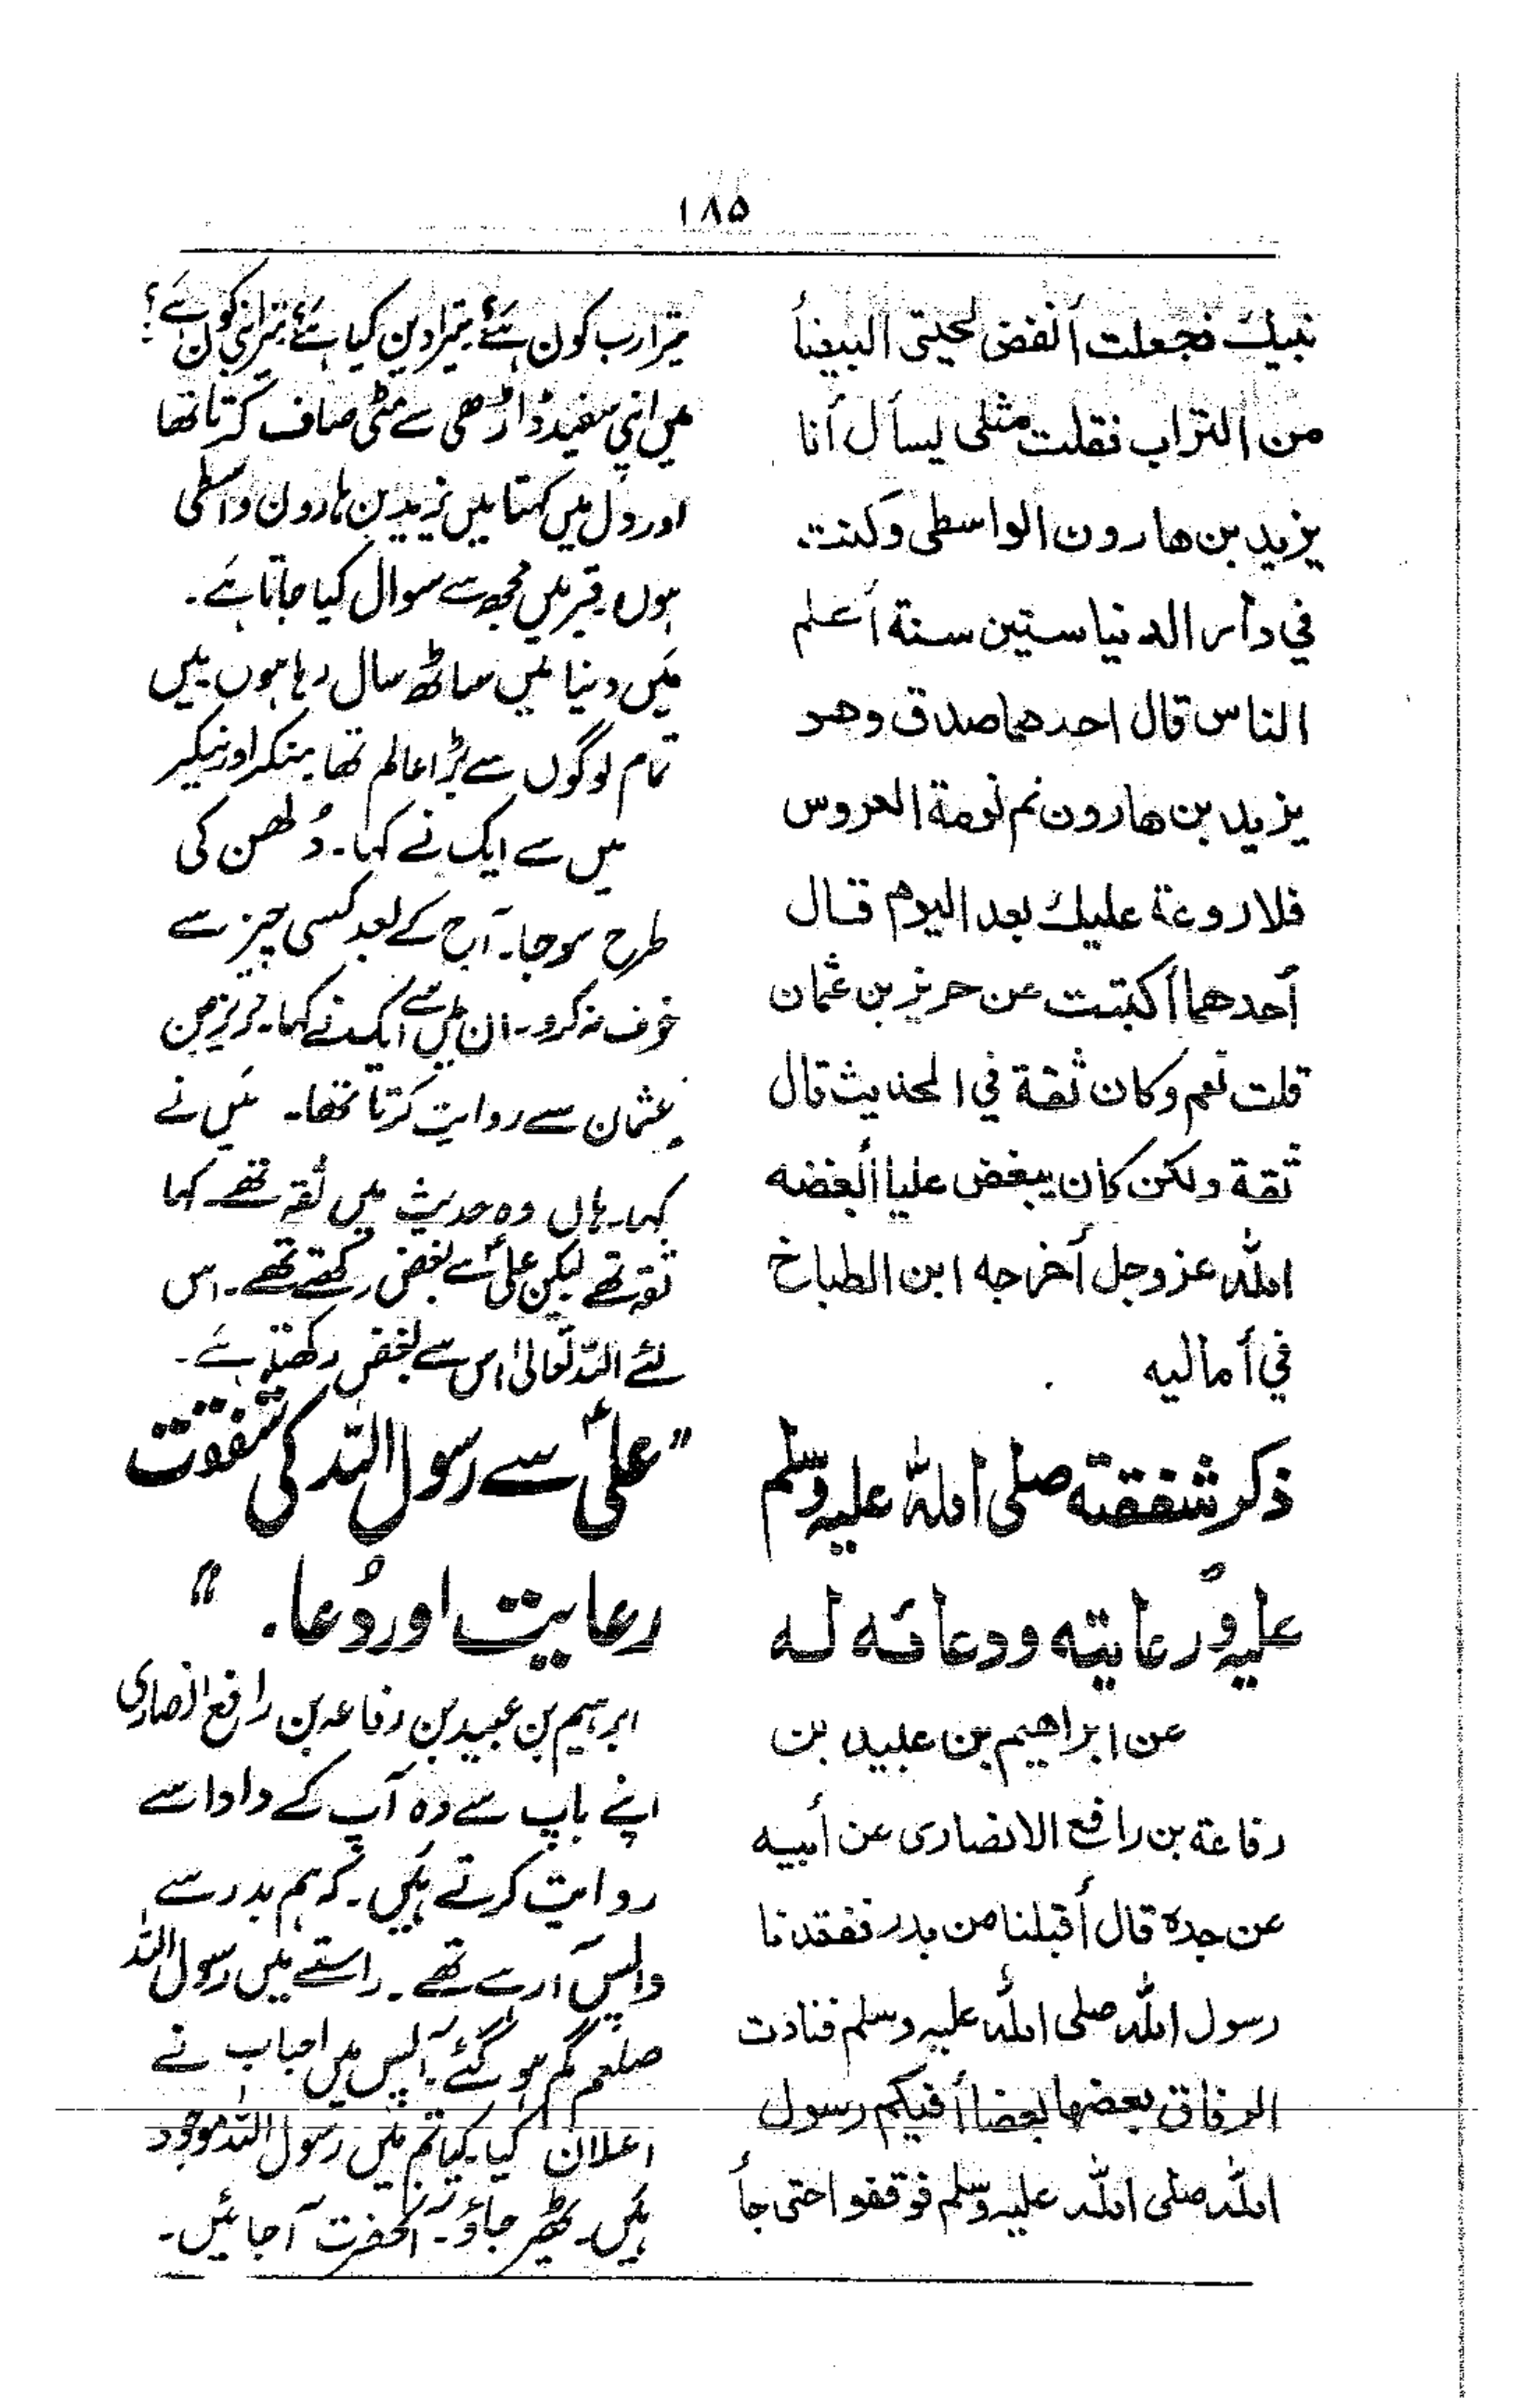 ۱۸۵
نبيك فجعلت أنفض لحيتى البيضأ
من التراب فقلت مثلى ليسأل أنا
يزيد بن هارون الواسطى وكنت
في دار الدنيا ستين سنة أعلم
الناس قال احدهما صدق وهو
يزيد بن هارون نم نومة العروس
فلا روعة عليك بعد اليوم قال
أحدهما أكتبت عن حريز بن عثمان
قلت نعم وكان ثقة في الحديث قال
ثقة ولكن كان يبغض عليا أبغضه
الله عزوجل أخرجه ابن الطباخ
في أماليه
ذكر شفقته صلى الله عليه وسلم
عليه و رعايته ودعائه له
عن ابراهيم بن عبيد بن
رفاعة بن رافع الانصارى عن أبيه
عن جده قال أقبلنا من بدر ففقدنا
رسول الله صلى الله عليه وسلم فنادت
الرفاق بعضها بعضا أفيكم رسول
الله صلى الله عليه وسلم فوقفوا حتى جأ
تیرا رب کون ہے؟ تیرا دین کیا ہے؟ تیرا نبی کون ہے؟
میں اپنی سفید ڈاڑھی سے مٹی صاف کرتا تھا
اور دل میں کہتا میں یزید بن ہارون واسطی
ہوں۔ قبر میں مجھ سے سوال کیا جاتا ہے۔
میں دنیا میں ساٹھ سال رہا ہوں میں
تمام لوگوں سے بڑا عالم تھا۔ منکر اور نیکر
میں سے ایک نے کہا۔ دُلھن کی
طرح سو جا۔ آج کے بعد کسی چیز سے
خوف نہ کرو۔ ان میں سے ایک نے کہا۔ حریز بن
عثمان سے روایت کرتا تھا۔ میں نے
کہا۔ ہاں وہ حدیث میں ثقہ تھے کہا
ثقہ تھے لیکن علیؑ سے بغض رکھتے تھے۔ اس
لئے اللہ تعالیٰ اس سے بغض رکھتا ہے۔
"علیؑ سے رسول اللہ کی شفقت
رعایت اور دُعا۔"
ابرہیم بن عبید بن رفاعہ بن رافع انصاری
اپنے باپ سے وہ آپ کے دادا سے
روایت کرتے ہیں۔ کہ ہم بدر سے
واپس آرہے تھے۔ راستے میں رسول اللہ
صلعم گم ہو گئے۔ آپس میں احباب نے
اعلان کیا۔ کیا تم میں رسول اللہ موجود
ہیں۔ ٹھیر جاؤ۔ آنحضرت آجائیں۔